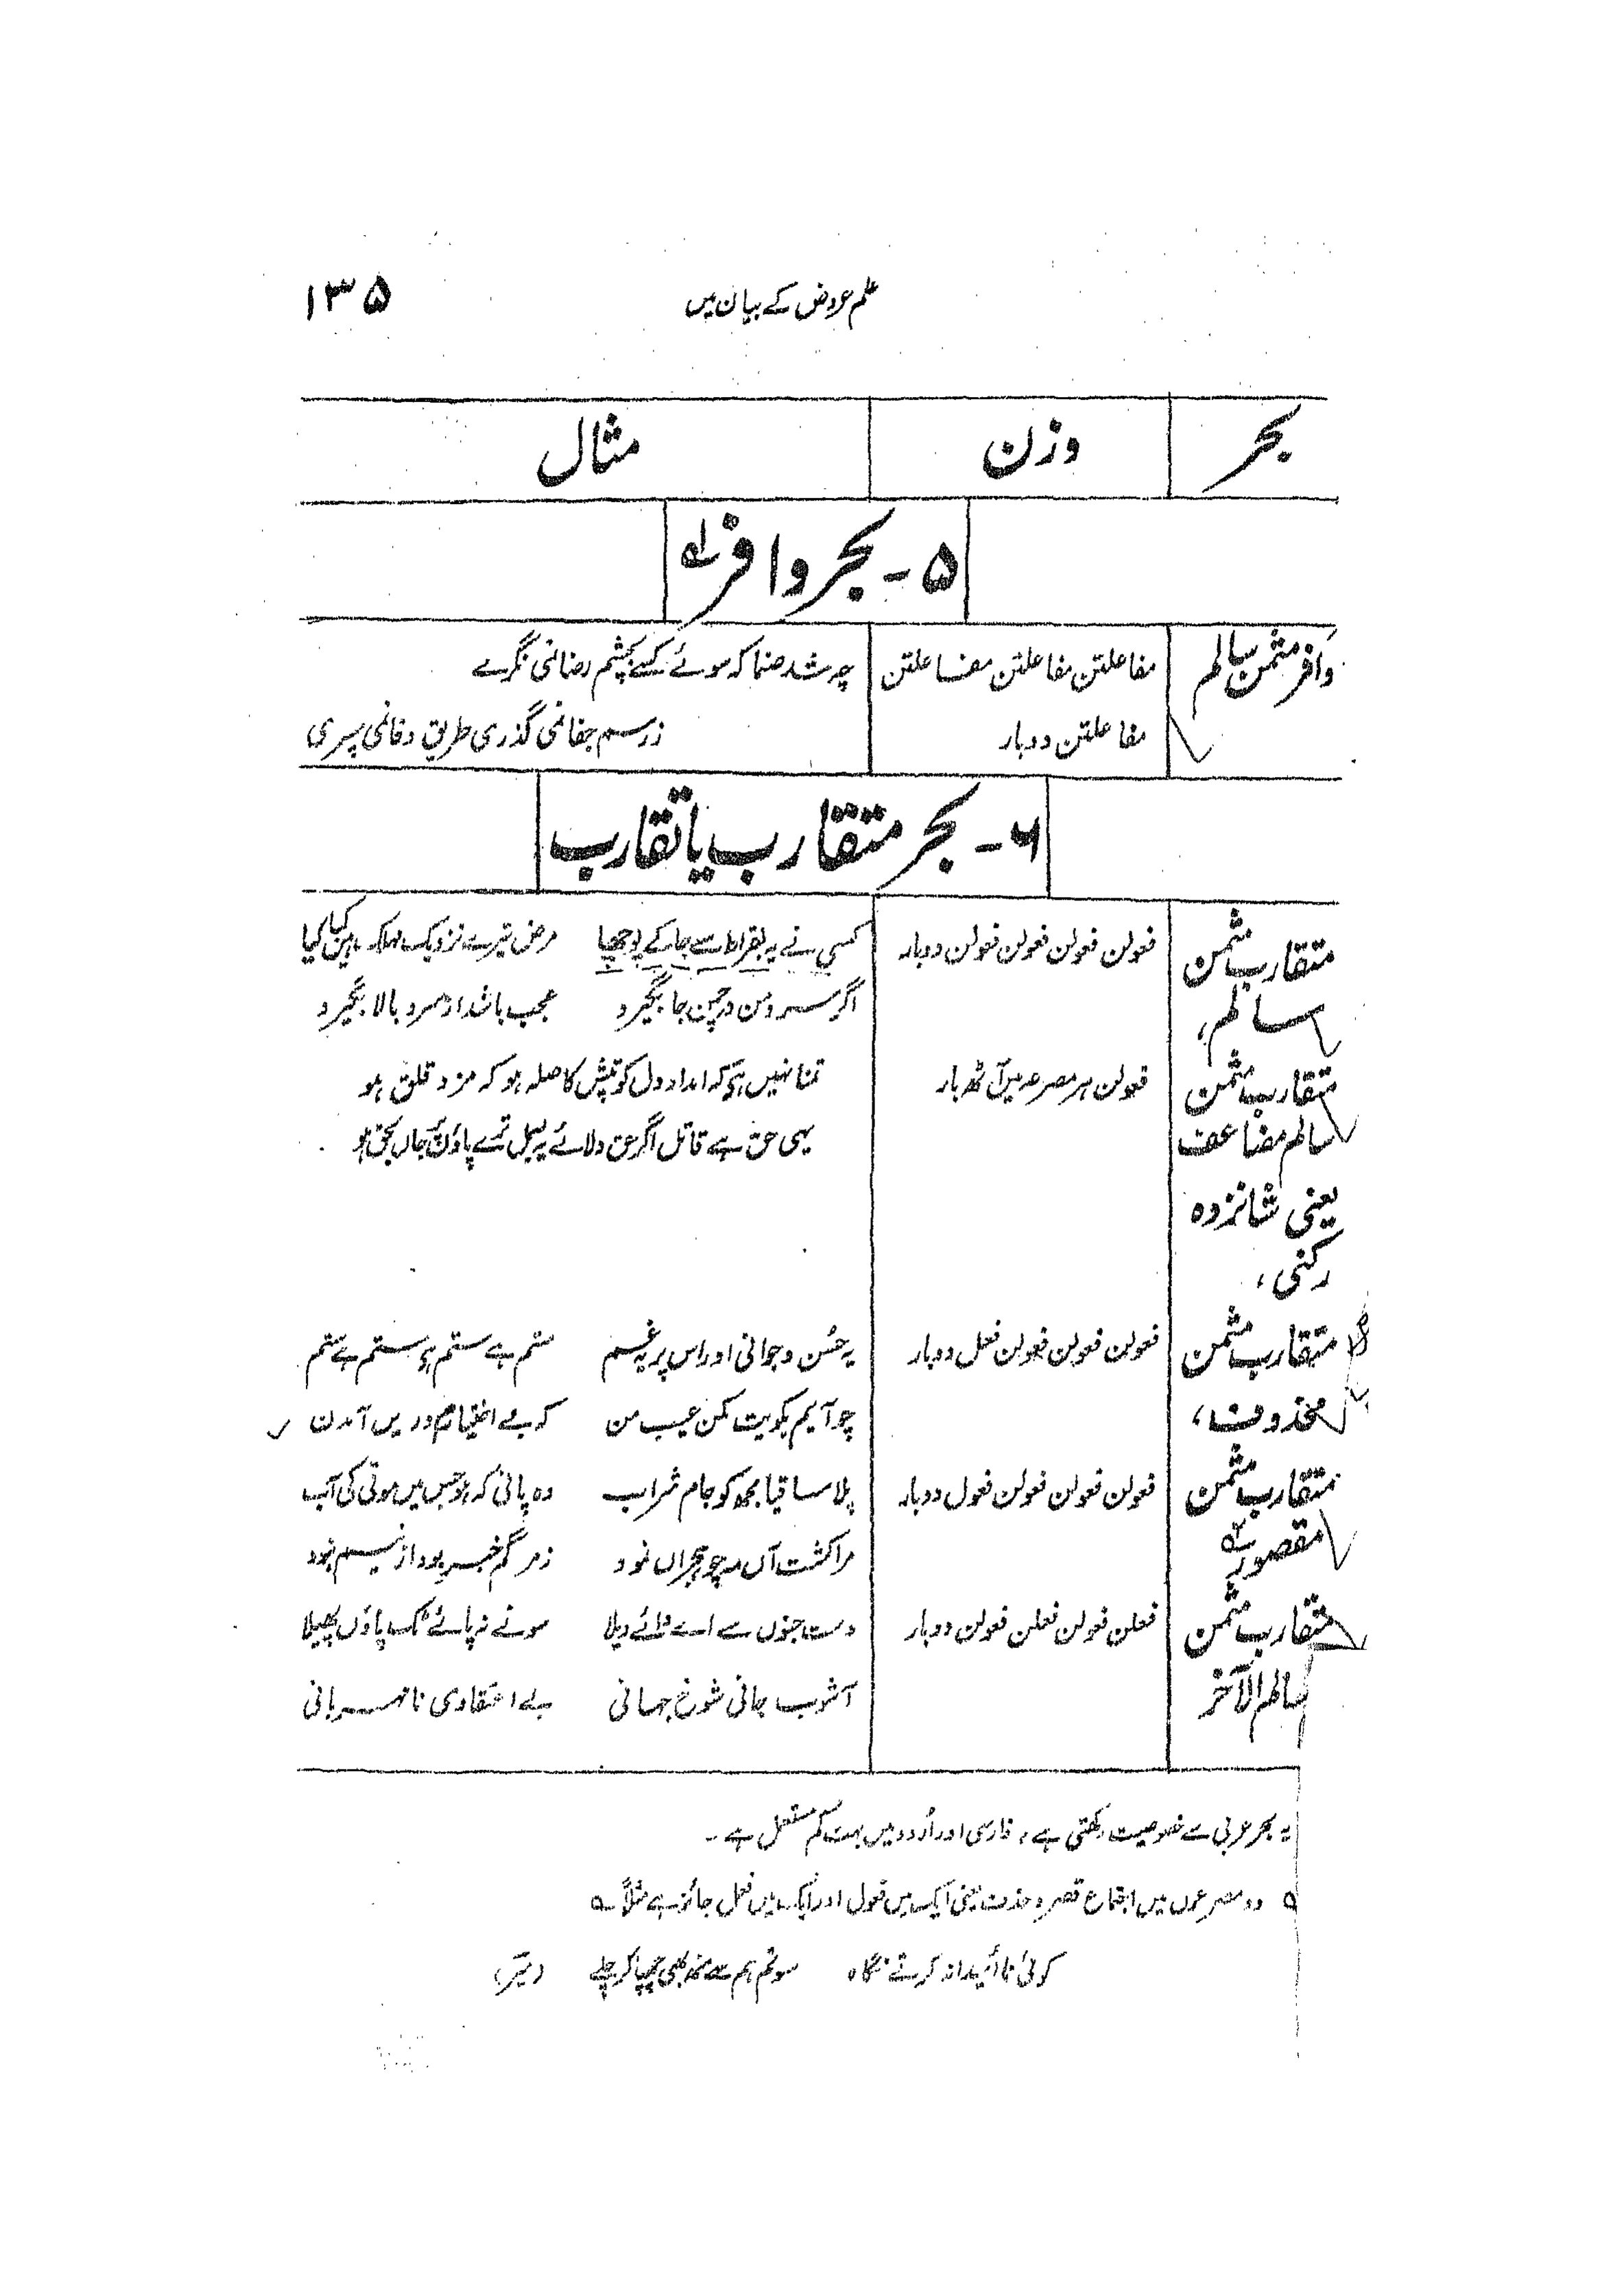 علم عروض کے بیان میں ۱۳۵
بحر وزن مثال
۵ - بحر وافر
وافر مثمن سالم مفاعلتن مفاعلتن مفاعلتن چہ شد صنما کہ سوئے کسے بچشم رضا نمی نگرے
مفاعلتن دوبار ز رسم جفا نمی گذری طریق وفا نمی سپری
۶ - بحر متقارب یا تقارب
متقارب مثمن فعولن فعولن فعولن فعولن دوبار کسی نے یہ بقراط سے جا کے پوچھا مرض تیرے نزدیک مہلک ہیں کیا کیا
سالم، اگر سرو من در چمن جا بگیرد عجب باشد ار سرو بالا بگیرد
متقارب مثمن فعولن ہر مصرعہ میں آٹھ بار تمنا نہیں ہے کہ امداد دل کو تپش کا صلہ ہو کہ مزد قلق ہو
سالم مضاعف یہی حق ہے قاتل اگر حق دلائے یہ بسمل ترے پاؤں جاں بحق ہو
یعنی شانزدہ
رکنی،
متقارب مثمن فعولن فعولن فعولن فعل دوبار یہ حُسن و جوانی اور اس پر یہ غم ستم ہے ستم ہے ستم ہے ستم
محذوف، چو آیم بکویت مکن عیب من کہ بے اختیارم دریں آمدن
متقارب مثمن فعولن فعولن فعولن فعول دوبار پلا ساقیا مجھ کو جام شراب وہ پانی کہ ہو جس میں موتی کی آب
مقصور مرا کشت آں مہ چو ہجراں نمود ز مرگم خبر بود از بیم نبود
متقارب مثمن فعلن فعولن فعلن فعولن دوبار دست جنوں سے اے وائے ویلا سونے نہ پائے ٹک پاؤں پھیلا
سالم الآخر آشوب جانی شوخ جہانی بے اعتقادی نامہربانی
یہ بحر عربی سے خصوصیت رکھتی ہے، فارسی اور اُردو میں بہت کم مستعمل ہے -
دو مصرعوں میں اجتماع قصر و حذف یعنی ایک میں فعول اور ایک میں فعل جائز ہے مثلاً
کوئی نا اُمیدانہ کرتے نگاہ سو تم ہم سے منہ بھی چھپا کر چلے (میر)